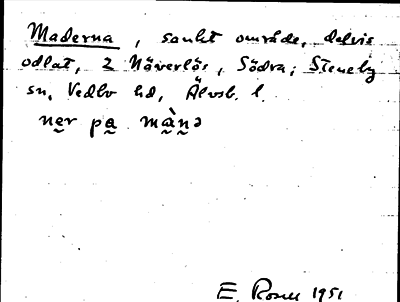 Maderna, sankt område, delvis
odlat, 2 Näverlös, Södra; Steneby
sn, Vedbo hd, Älvsb. l.
ner pa mànə
E. Rosell 1951